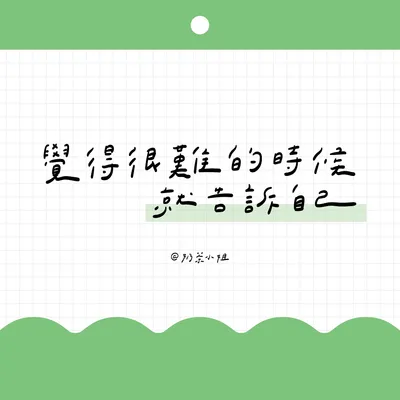 覺得很難的時候
就告訴自己
@奶茶小姐